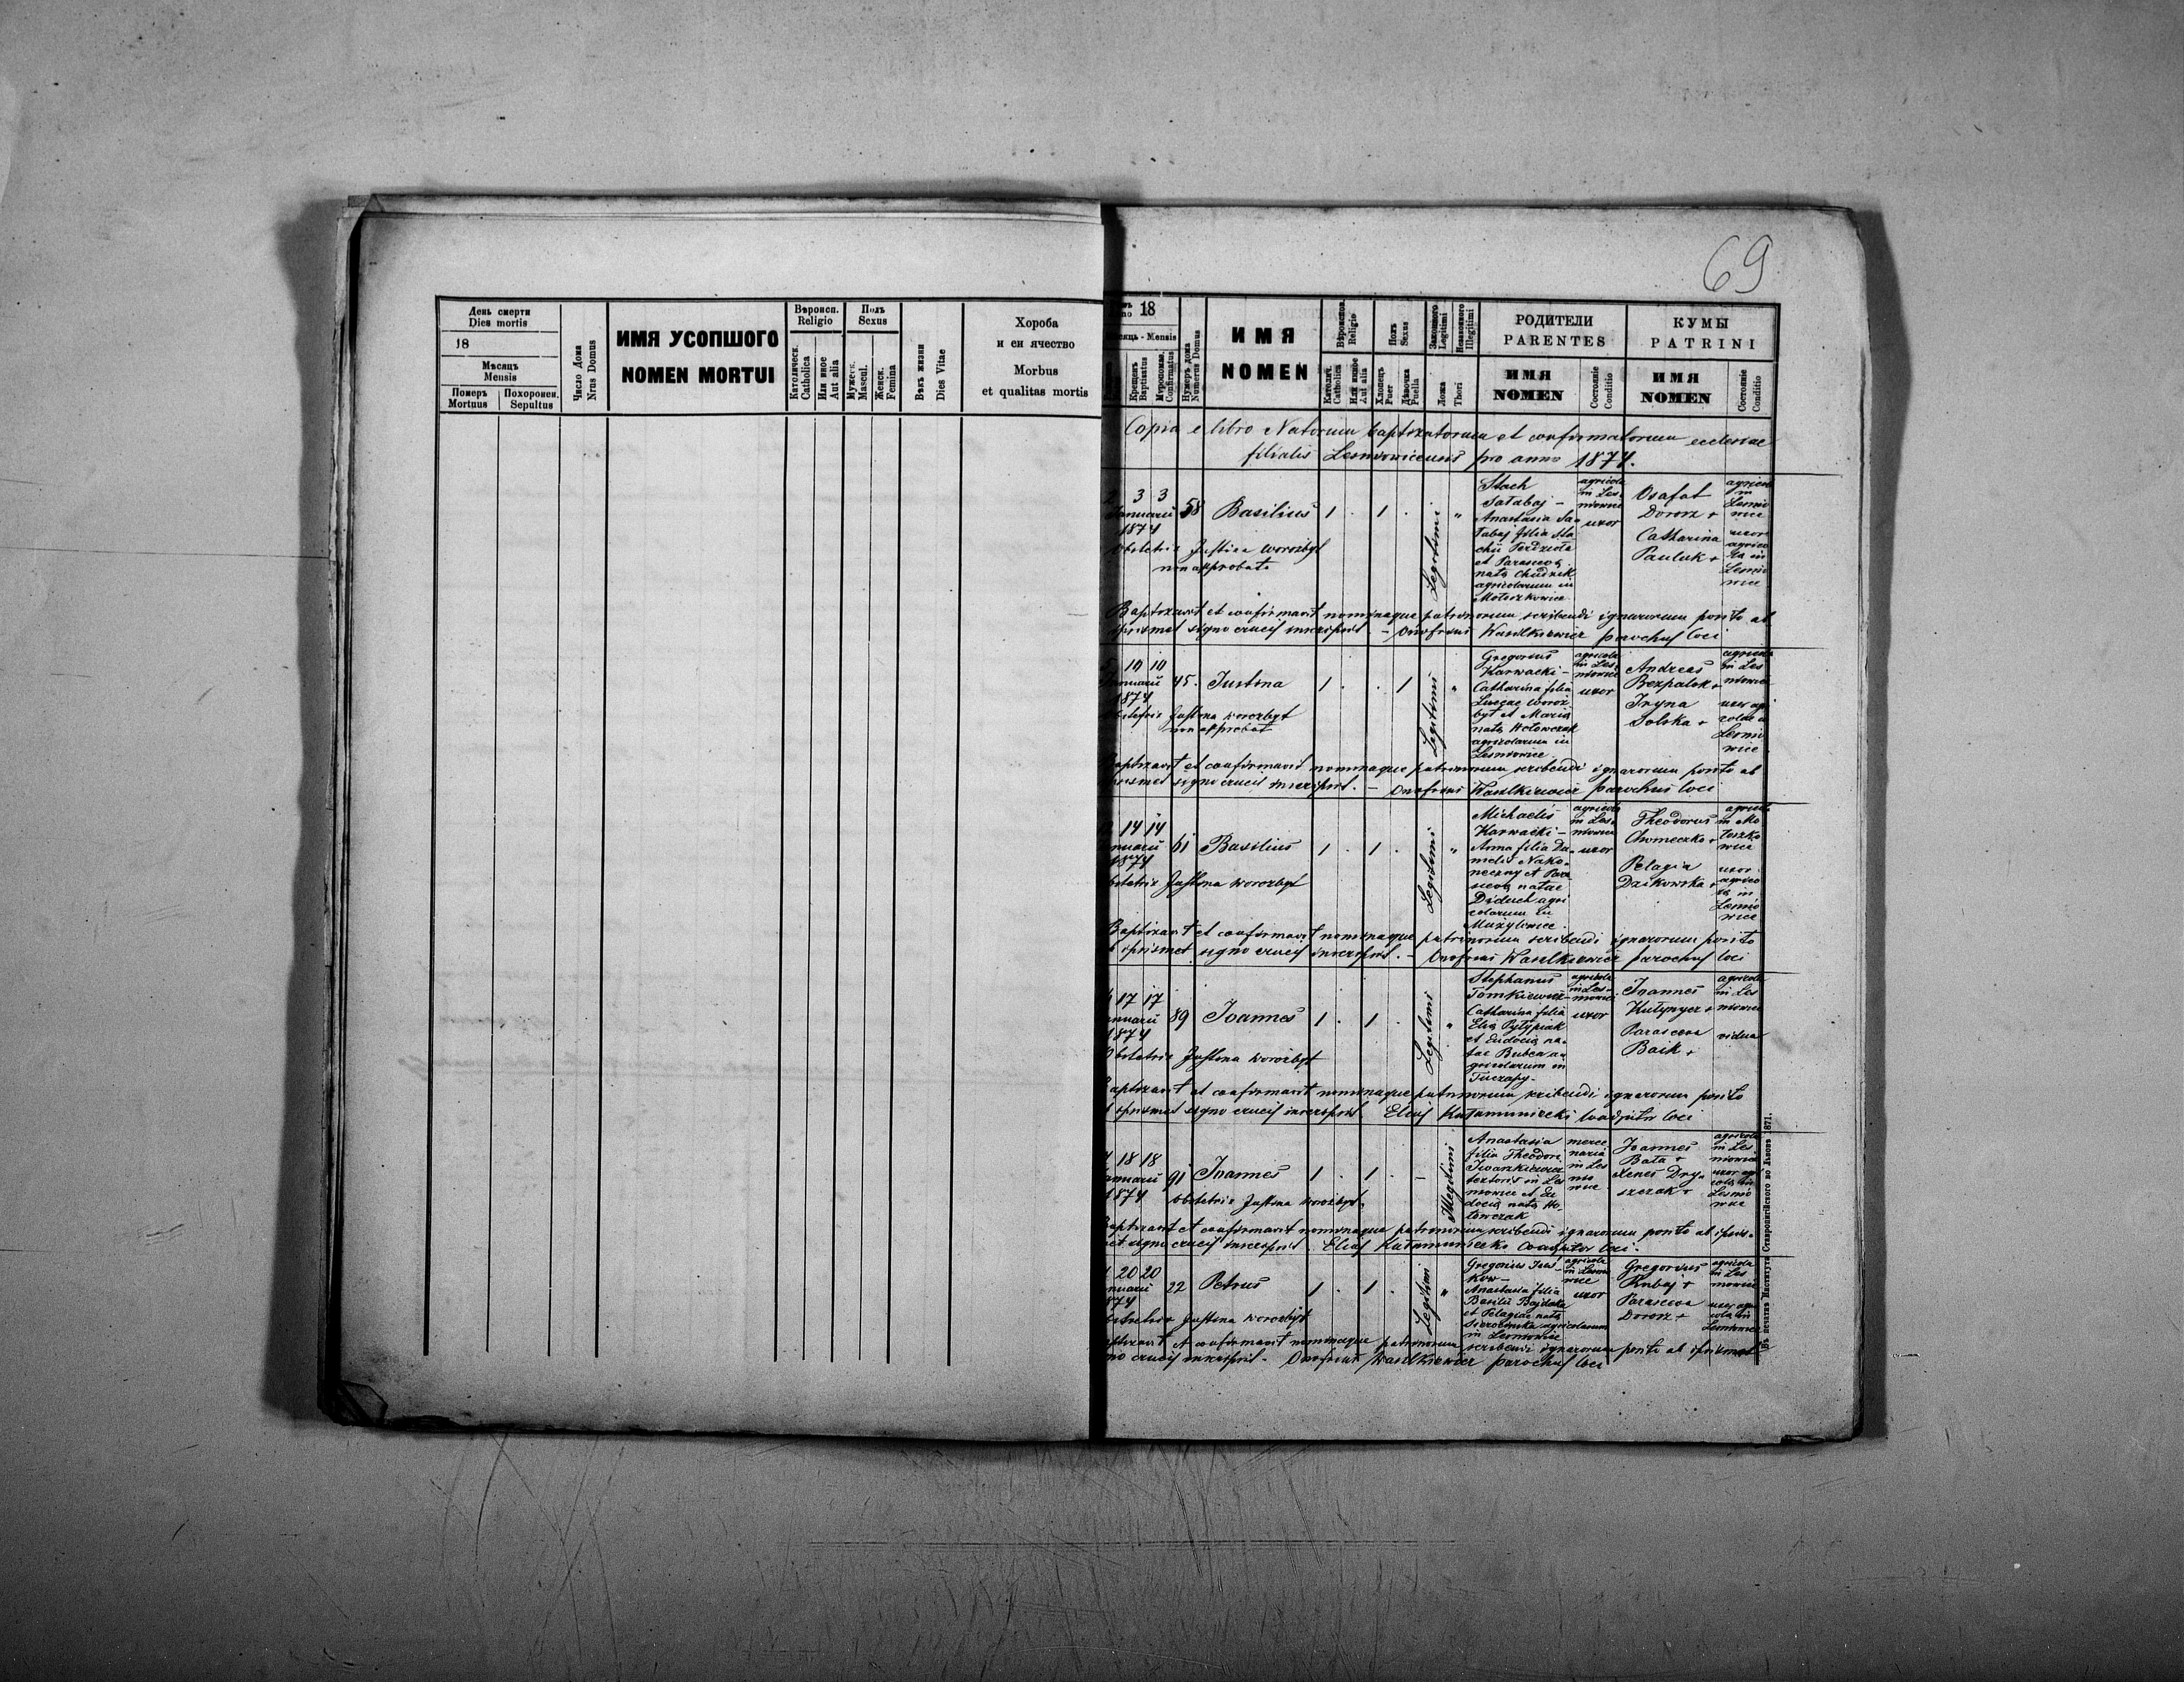 День смерти
Dies mortis
18
Мѣсяцъ
Mensis
Померъ
Mortuus
Похоронен.
Sepultus
Число Дома
Nrus Domus
ИМЯ УСОПШОГО
NOMEN MORTUI
Вѣроисп.
Religio
Католическ.
Catholica
Или иное
Aut alia
Полъ
Sexus
Мужеск.
Mascul.
Женск.
Femina
Вѣкъ жизни
Dies Vitae
Хороба
и еи ячество
Morbus
et qualitas mortis
69
18
Mensis
Крещенъ
Baptisatus
Миропомаз.
Confirmatus
Нумеръ дома
Numerus Domus
ИМЯ
NOMEN
Вѣроиспов.
Religio
Католич.
Catholica
Или иное
Aut alia
Полъ
Sexus
Хлопецъ
Puer
Дѣвочка
Puella
Законного
Legitimi
Незаконного
Illegitimi
Ложа
Thori
РОДИТЕЛИ
PARENTES
ИМЯ
NOMEN
Состояніе
Conditio
КУМЫ
PATRINI
ИМЯ
NOMEN
Состояніе
Conditio
Copia e libro Natorum baptizatorum et confirmatorum ecclesiae
filialis Lesniowicensis pro anno 1874.
3 3
Januarii
1874
58
Basilius
1 . 1 .
Legitimi
Stach
Anastasia
filia
et Parasceva
agricolarum in
agricola
in Les
niowice
uxor
Dorosz +
Catharina
Pauluk +
agricola
in
Lesnio
wice
uxor
agrico
la in
Lesnio
wice
Obstetrix Justina Worozbyt
non approbata
Baptizavit et confirmavit nominaque patrinorum scribendi ignarorum posito ab
ipsismet signo crucis inscripsit. – Onofrius Wasilkiewicz parochus loci
10 10
Januarii
1874
45.
Justina
1 . . 1
Legitimi
Gregorius
Karwacki –
Catharina filia
Lucae Woroz
byt et Maria
agricolarum in
Lesniowice
agricola
in Les
niowice
uxor
Andreas
Bezpalok +
Iryna
Solska +
agricola
in Les
niowice
uxor agri
colae in
Lesnio
wice
Obstetrix Justina Worozbyt
non approbat
Baptizavit et confirmavit nominaque patrinorum scribendi ignarorum posito ab
ipsismet signo crucis inscripsit. – Onofrius Wasilkiewicz parochus loci
14 14
Januarii
1874
61
Basilius
1 . 1 .
Legitimi
Michaelis
Karwacki –
Anna filia Da
nielis Nako
neczny et Para
scevae natae
Diduch agri
colarum in
Mużyłowice
agricola
in Les
niowice
uxor
Theodorus
Chomeczko +
Pelagia
Daikowska +
agricola
uxor
agrico
la in
Lesnio
wice
Obstetrix Justina Worozbyt
Baptizavit et confirmavit nominaque patrinorum scribendi ignarorum posito
ab ipsismet signo crucis inscripsit. – Onofrius Wasilkiewicz parochus loci
17 17
Januarii
1874
89
Ioannes
1 . 1 .
Legitimi
Stephanus
Tomkiewicz –
Catharina filia
et Eudocia na
tae Buben a
gricolarum in
Tuczapy –
agricola
in Les
niowice
uxor
Ioannes
Parasceva
Baik +
agricola
in Les
niowice
vidua
Obstetrix Justina Worozbyt
Baptizavit et confirmavit nominaque patrinorum scribendi ignarorum posito
ab ipsismet signo crucis inscripsit. Elias coadjutor loci
18 18
Januarii
1874
91
Ioannes
1 . 1 . –
Illegitimi
Anastasia
filia Theodori
Iwaszkiewicz
textoris in Les
niowice et Eu
docia nata
merce
naria
in Les
nio
wice
Ioannes
Bata +
agricola
in Les
niowice
uxor agri
Lesnio
wice
Obstetrix Justina Worozbyt
Baptizavit et confirmavit nominaque patrinorum scribendi ignarorum posito ab ipsis
met signo crucis inscripsit. Elias coadjutor loci.
20 20
Januarii
1874
22
Petrus
1 . 1 .
Legitimi
Gregorius
Anastasia filia
Basilii
et Pelagiae nata
agricolarum
in Lesniowice
agricola
in Lesnio
wice
uxor
Gregorius
Rubaj +
Parasceva
Dorosz +
agricola
in Les
niowice
uxor agri
cola in
Lesniowice
Obstetrix Justina Worozbyt
Baptizavit et confirmavit nominaque patrinorum scribendi ignarorum posito ab ipsismet
signo crucis inscripsit. – Onofrius Wasilkiewicz parochus loci
Въ печатнѣ Института Ставропигійского во Львовѣ 1871.